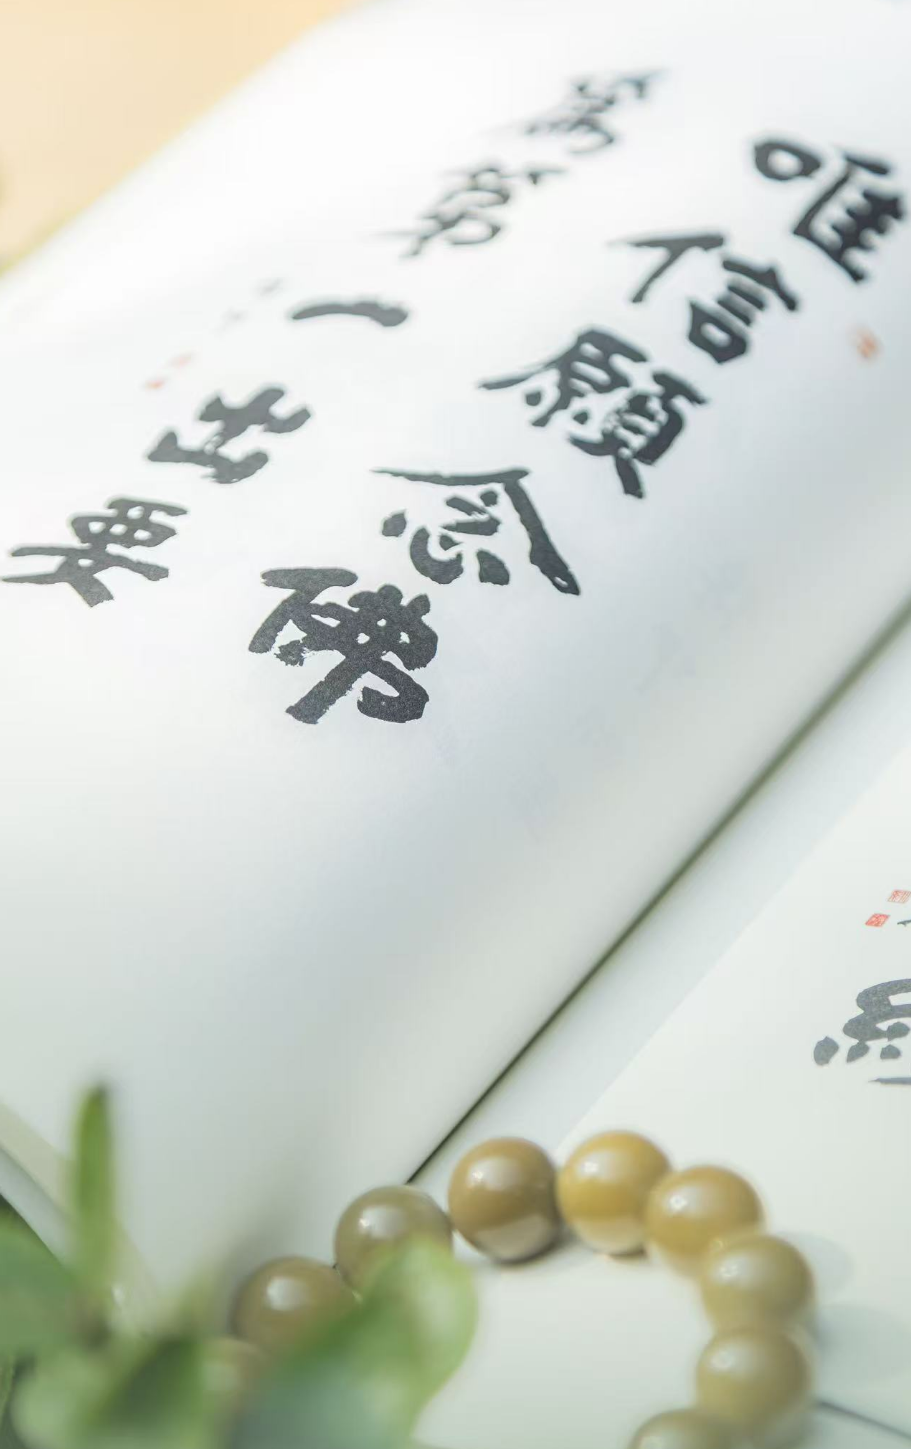 唯信願念佛
為第一切要